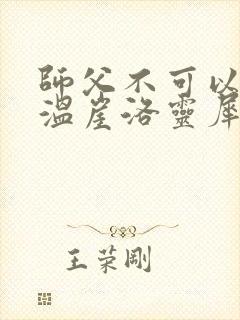 師父不可以
溫崖洛靈犀
王荣剛